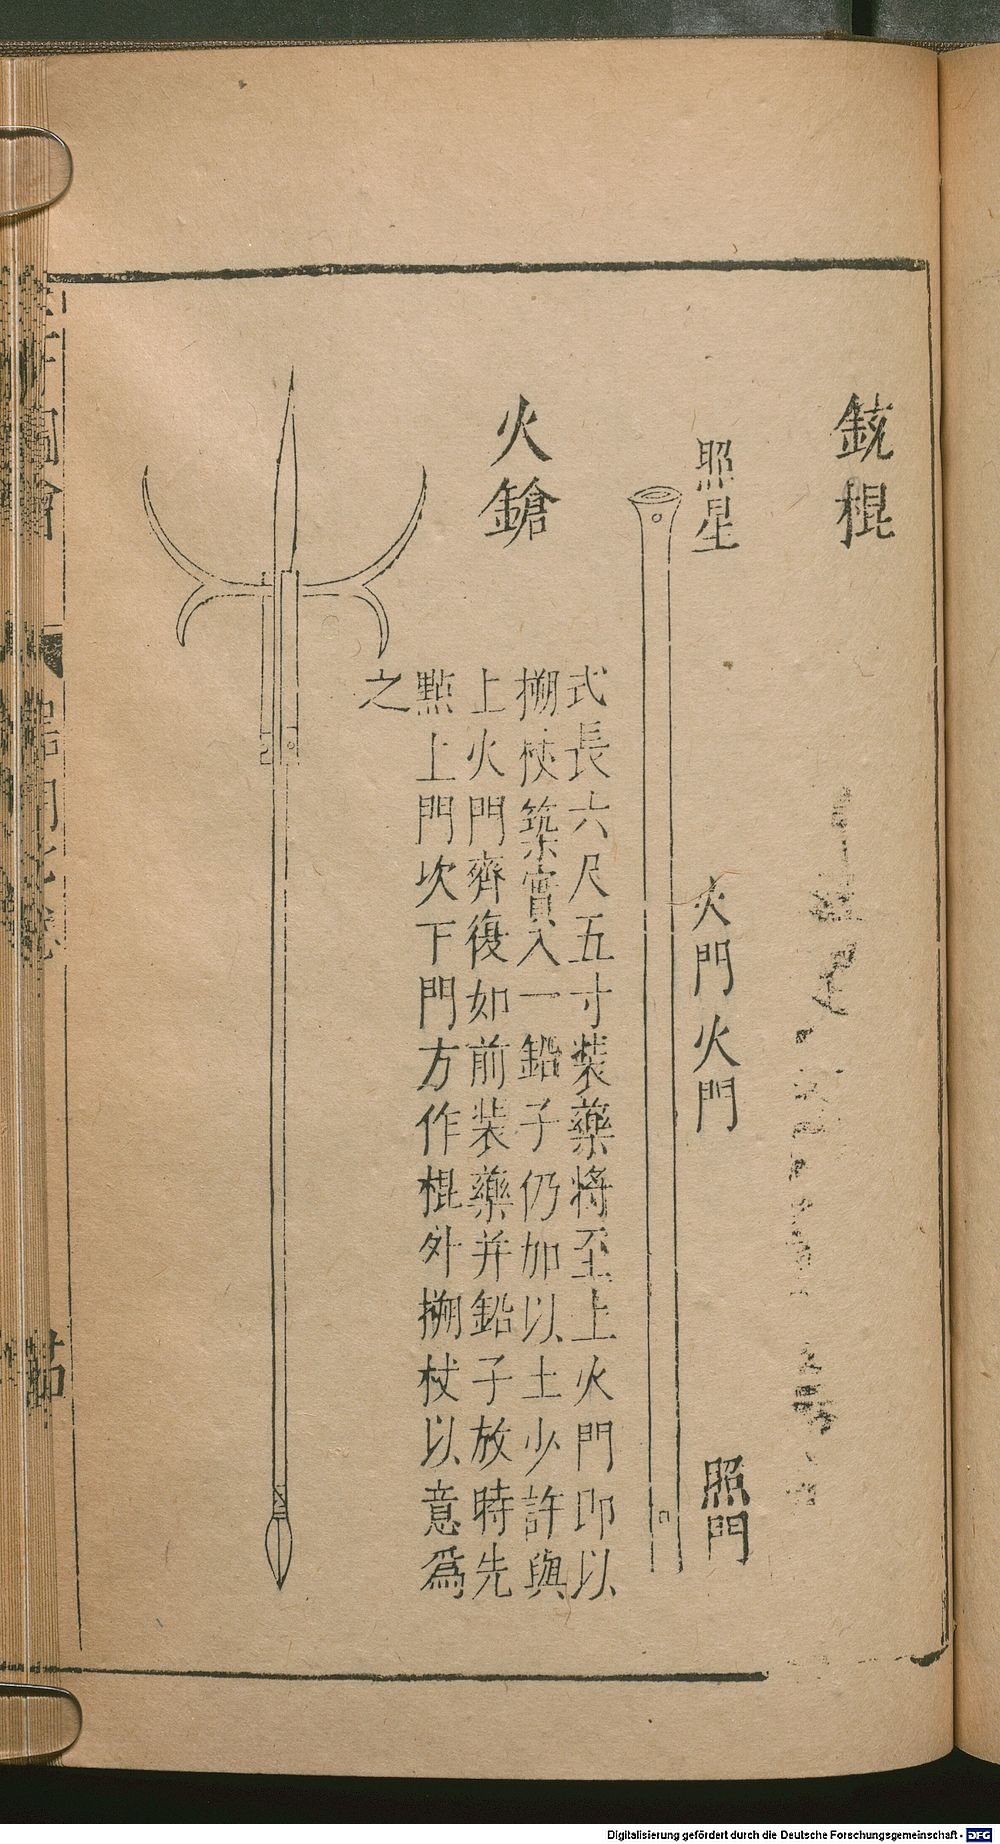 銃棍
照星
火門火門
照門
式長六尺五寸裝藥將至上火門即以
搠杖築實入一鉛子仍加以土少許與
上火門齊復如前裝藥并鉛子放時先
點上門次下門方作棍外搠杖以意爲
之
火鎗
Digitalisierung gefördert durch die Deutsche Forschungsgemeinschaft - DFG